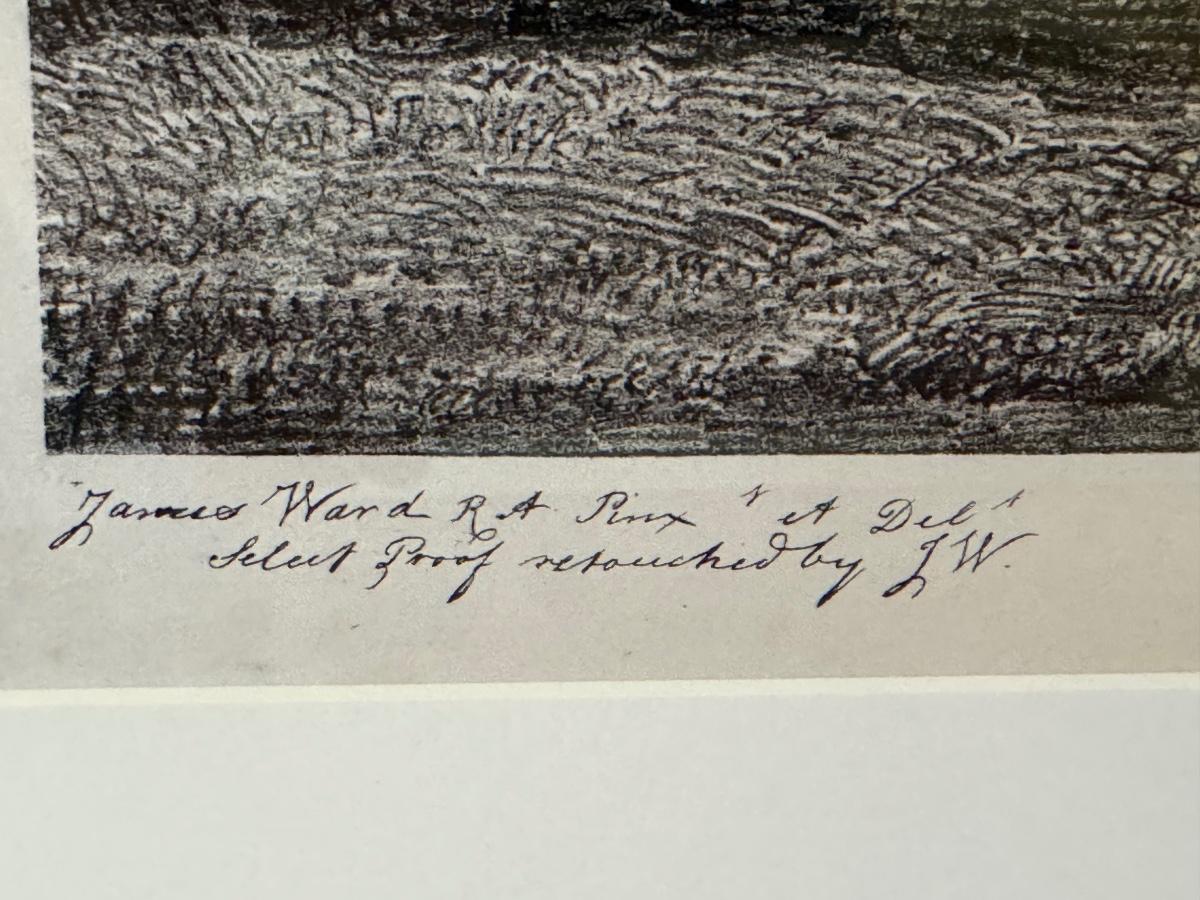 James Ward R A Pinx t et Del t
Select Proof retouched by J W.